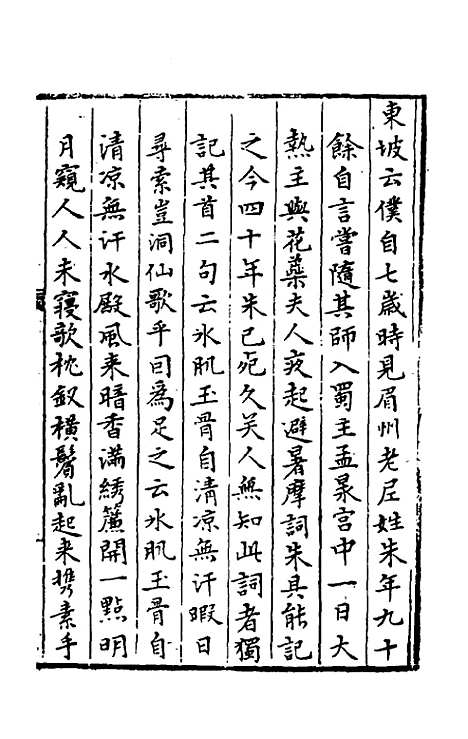 東坡云僕自七歲時見眉州老尼姓朱年九十
餘自言嘗隨其師入蜀主孟泉宮中一日大
熱主與花蘂夫人夜起避暑摩詞朱具能記
之今四十年朱已死久矣人無知此詞者獨
記其首二句云氷肌玉骨自清凉無汗暇日
尋索豈洞仙歌乎囙爲足之云氷肌玉骨自
清凉無汗水殿風来暗香滿綉簾開一點明
月窺人人未寢歌枕釵橫鬢亂起来携素手